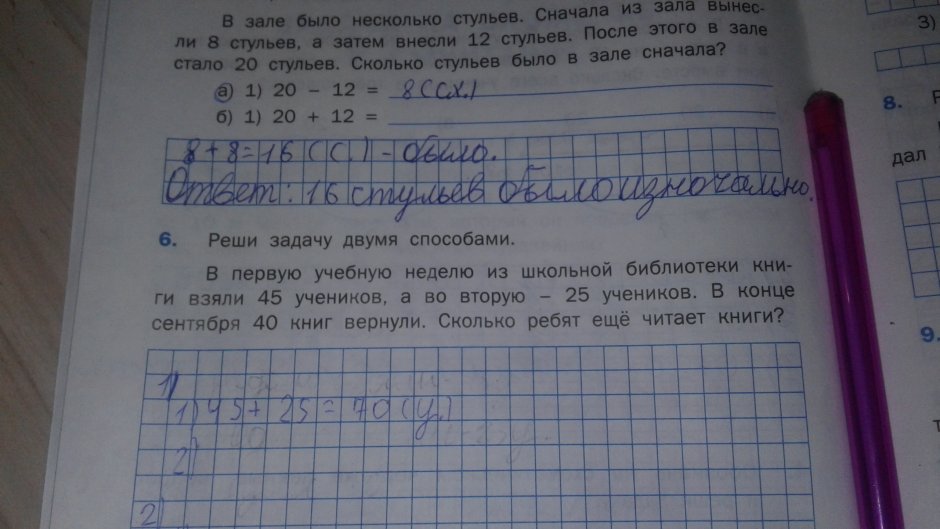 В зале было несколько стульев. Сначала из зала вынес-
ли 8 стульев, а затем внесли 12 стульев. После этого в зале
стало 20 стульев. Сколько стульев было в зале сначала?
а) 1) 20 – 12 = 8 (ст.)
б) 1) 20 + 12 =
8 + 8 = 16 (с.) - было.
Ответ: 16 стульев было изночально.
6. Реши задачу двумя способами.
В первую учебную неделю из школьной библиотеки кни-
ги взяли 45 учеников, а во вторую – 25 учеников. В конце
сентября 40 книг вернули. Сколько ребят ещё читает книги?
1)
1) 45 + 25 = 70 (у.)
2)
2)
3)
8.
дал
9.